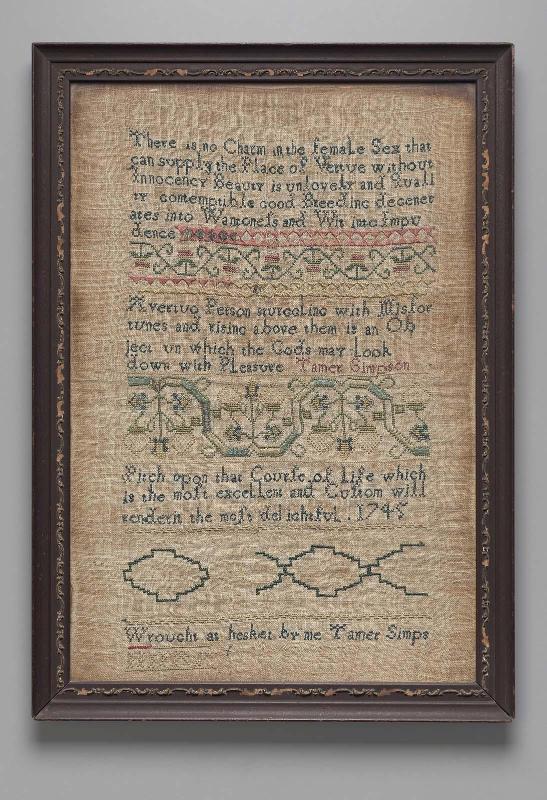 There is no Charm in the female Sex that
can supply the Place of Vertue without
Innocency Beauty is unlovely and Quali
ty contemptible Good Breeding degener
ates into Wantoneſs and Wit into Impu
dence
A vertuo Person strugeling with Misfor
tunes and rising above them is an Ob
ject on which the Gods may Look
down with Pleasure Tamer Simpson
Pitch upon that Courſe of life which
is the moſt excellent and Cuſtom will
render it the moſt delightful . 1745
Wrought at hesket by me Tamer Simps